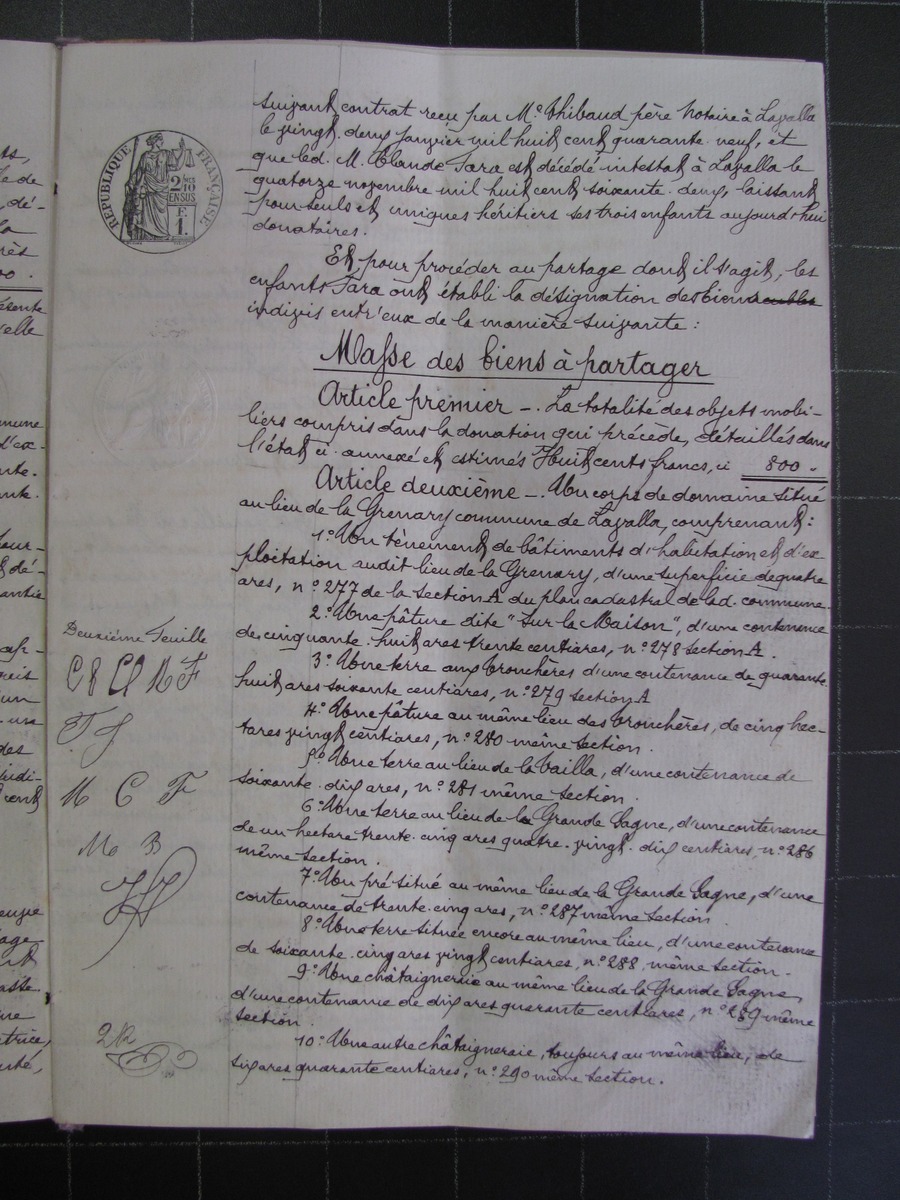 suivant contrat reçu par Me Thibaud père Notaire à Lavalla
le vingt-deux janvier mil huit cent quarante-neuf, et
que led. M. Claude Fara est décédé intestat à Lavalla le
quatorze novembre mil huit cent soixante-deux, laissant
pour seuls et uniques héritiers ses trois enfants aujourd'hui
donataires.
Et pour procéder au partage dont il s'agit, les
enfants Fara ont établi la désignation des biens
indivis entr'eux de la manière suivante :
Masse des biens à partager
Article premier -. La totalité des objets mobi-
liers compris dans la donation qui précède, détaillés dans
l'état ci-annexé et estimés Huit cents francs, ci 800 -
Article deuxième -. Un corps de domaine situé
au lieu de la Grenary commune de Lavalla, comprenant :
1° Un tènement de bâtiments d'habitation et d'ex-
ploitation audit lieu de la Grenary, d'une superficie de quatre
ares, n° 277 de la section A du plan cadastral de lad. commune.
2° Une pâture dite "Sur la Maison", d'une contenance
de cinquante-huit ares trente centiares, n° 278 section A.
3° Une terre aux brouchères d'une contenance de quarante-
huit ares soixante centiares, n° 279 section A
4° Une pâture au même lieu des brouchères, de cinq hec-
tares vingt centiares, n° 280 même section.
5° Une terre au lieu de la Vailla, d'une contenance de
soixante-dix ares, n° 281 même section.
6° Une terre au lieu de la Grande Sagne, d'une contenance
de un hectare trente-cinq ares quatre-vingt-dix centiares, n° 286
même section.
7° Un pré situé au même lieu de la Grande Sagne, d'une
contenance de trente-cinq ares, n° 287 même section
8° Une terre située encore au même lieu, d'une contenance
de soixante-cinq ares vingt centiares, n° 288, même section.
9° Une châtaigneraie au même lieu de la Grande Sagne,
d'une contenance de dix ares quarante centiares, n° 289 même
section.
10° Une autre châtaigneraie, toujours au même lieu, de
six ares quarante centiares, n° 290 même section.
REPUBLIQUE FRANÇAISE
2/10
EN SUS
F.
1.
Deuxième Feuille
M C F
M B